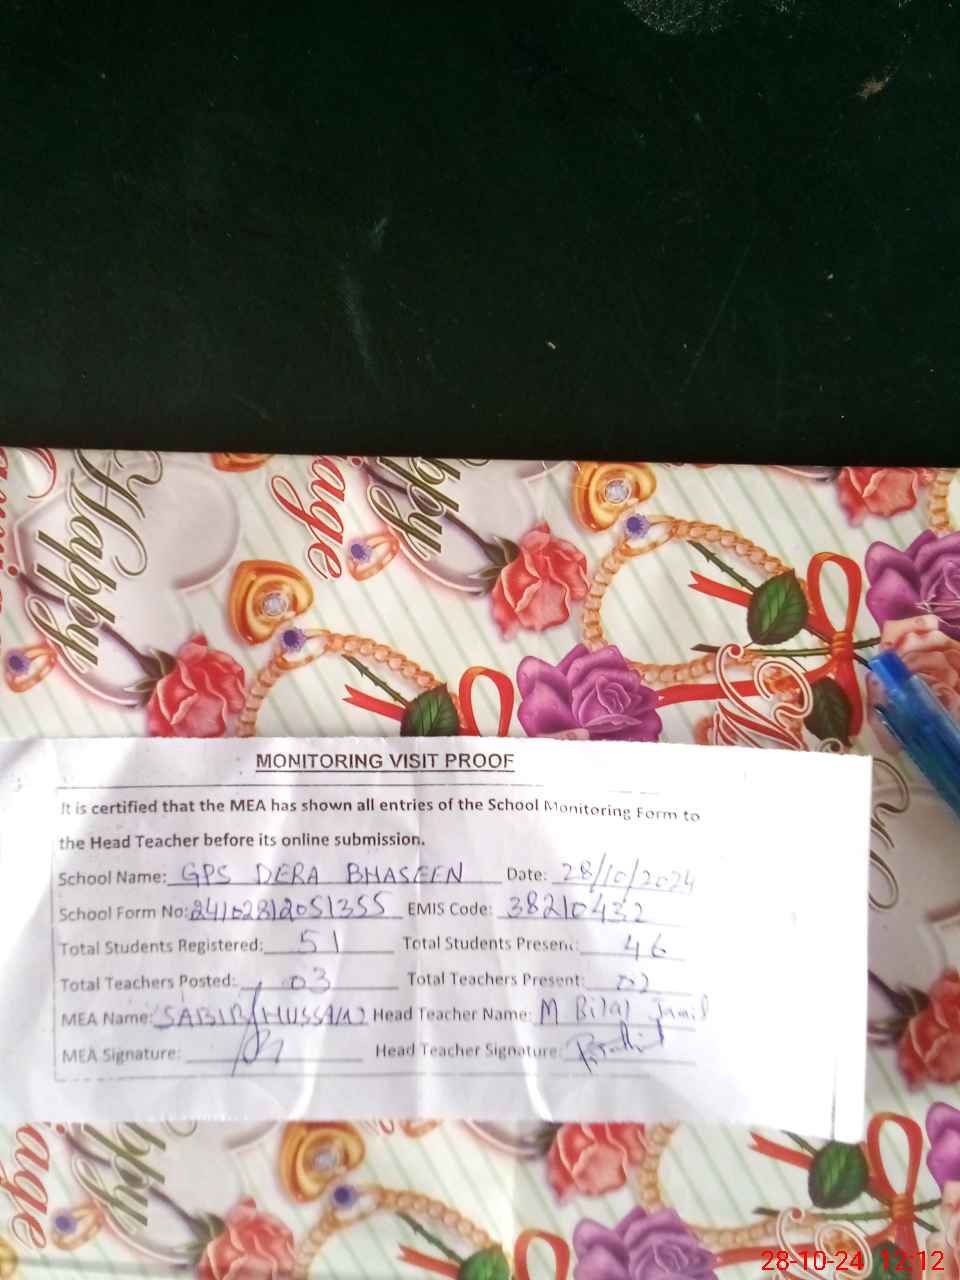 Happy
Happy
iage
ppy
MONITORING VISIT PROOF
It is certified that the MEA has shown all entries of the School Monitoring Form to
the Head Teacher before its online submission.
School Name: GPS DERA BHASEEN Date: 28/10/2024
School Form No: 24102812051355 EMIS Code: 38210432
Total Students Registered: 51 Total Students Present: 46
Total Teachers Posted: 03 Total Teachers Present: 02
MEA Name: SABIR HUSSAIN Head Teacher Name: M Bilal Jamil
MEA Signature: Head Teacher Signature:
iage
ppy
28-10-24 12:12